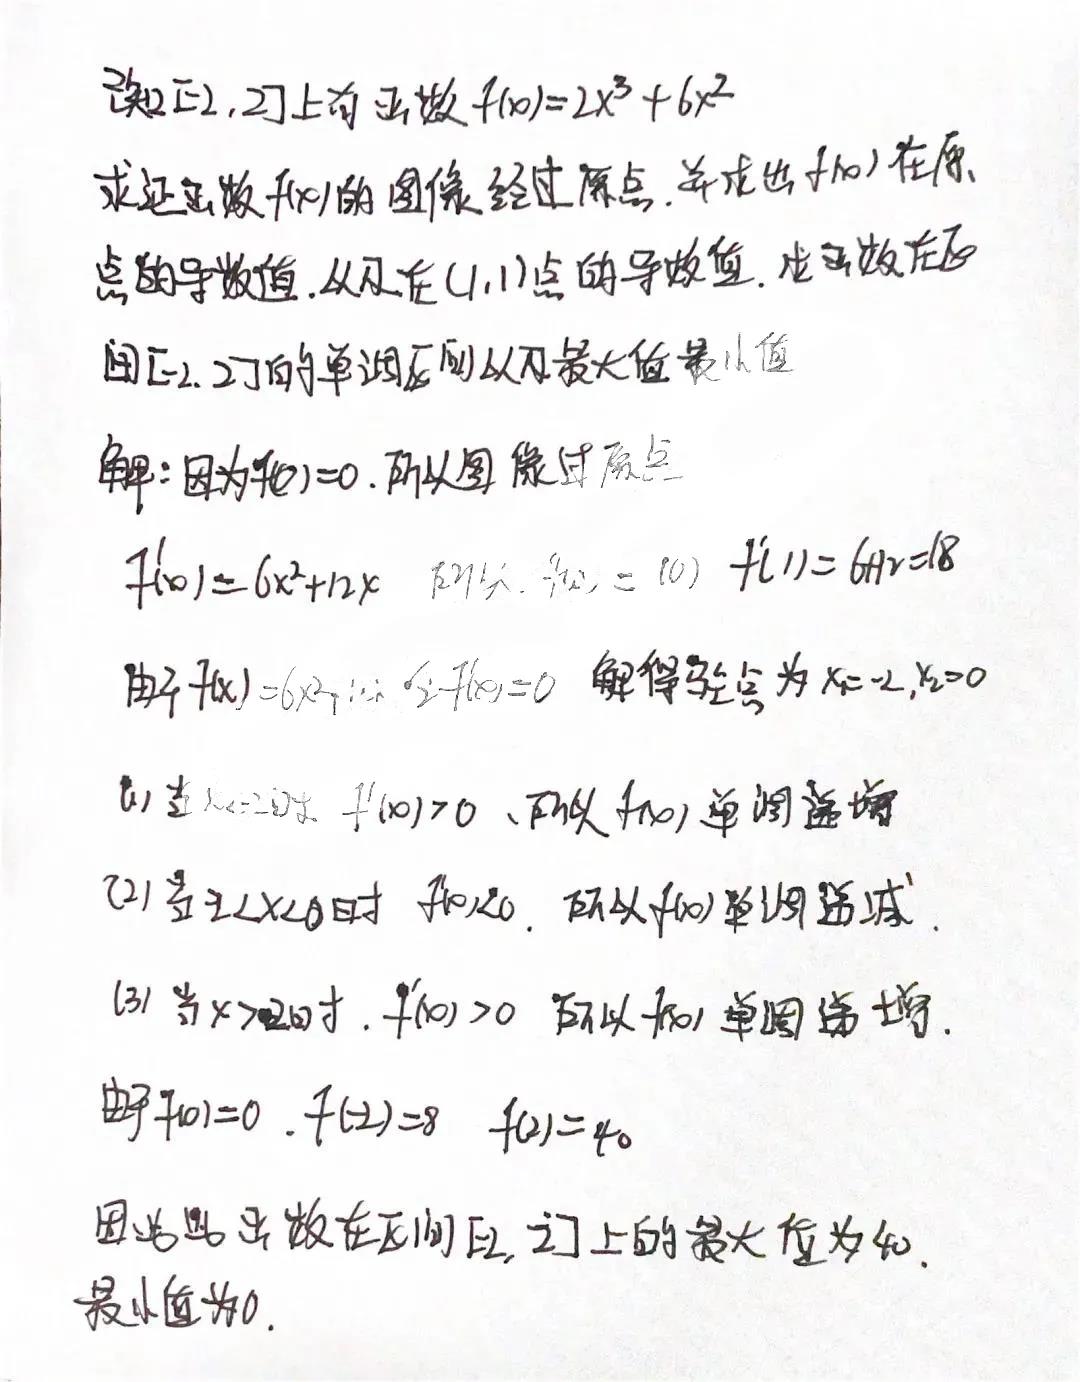 已知[-2,2]上有函数f(x)=2x³+6x²
求证函数f(x)的图像经过原点.并求出f(x)在原
点的导数值.以及在(1,1)点的导数值.求函数在区
间[-2,2]的单调区间以及最大值最小值
解:因为f(0)=0.所以图像过原点
f'(x)=6x²+12x 所以. f'(1)=6+12=18
由于f'(x)=6x²+ 令f'(x)=0 解得驻点为x₁=-2,x₂=0
(1)当x<-2时 f'(x)>0、所以f(x)单调递增
(2)当-2<x<0时 f'(x)<0.所以f(x)单调递减.
(3)当x> 时.f'(x)>0 所以f(x)单调递增.
由于f(0)=0.f(-2)=8 f(2)=40
因此 函数在区间[-2,2]上的最大值为40.
最小值为0.